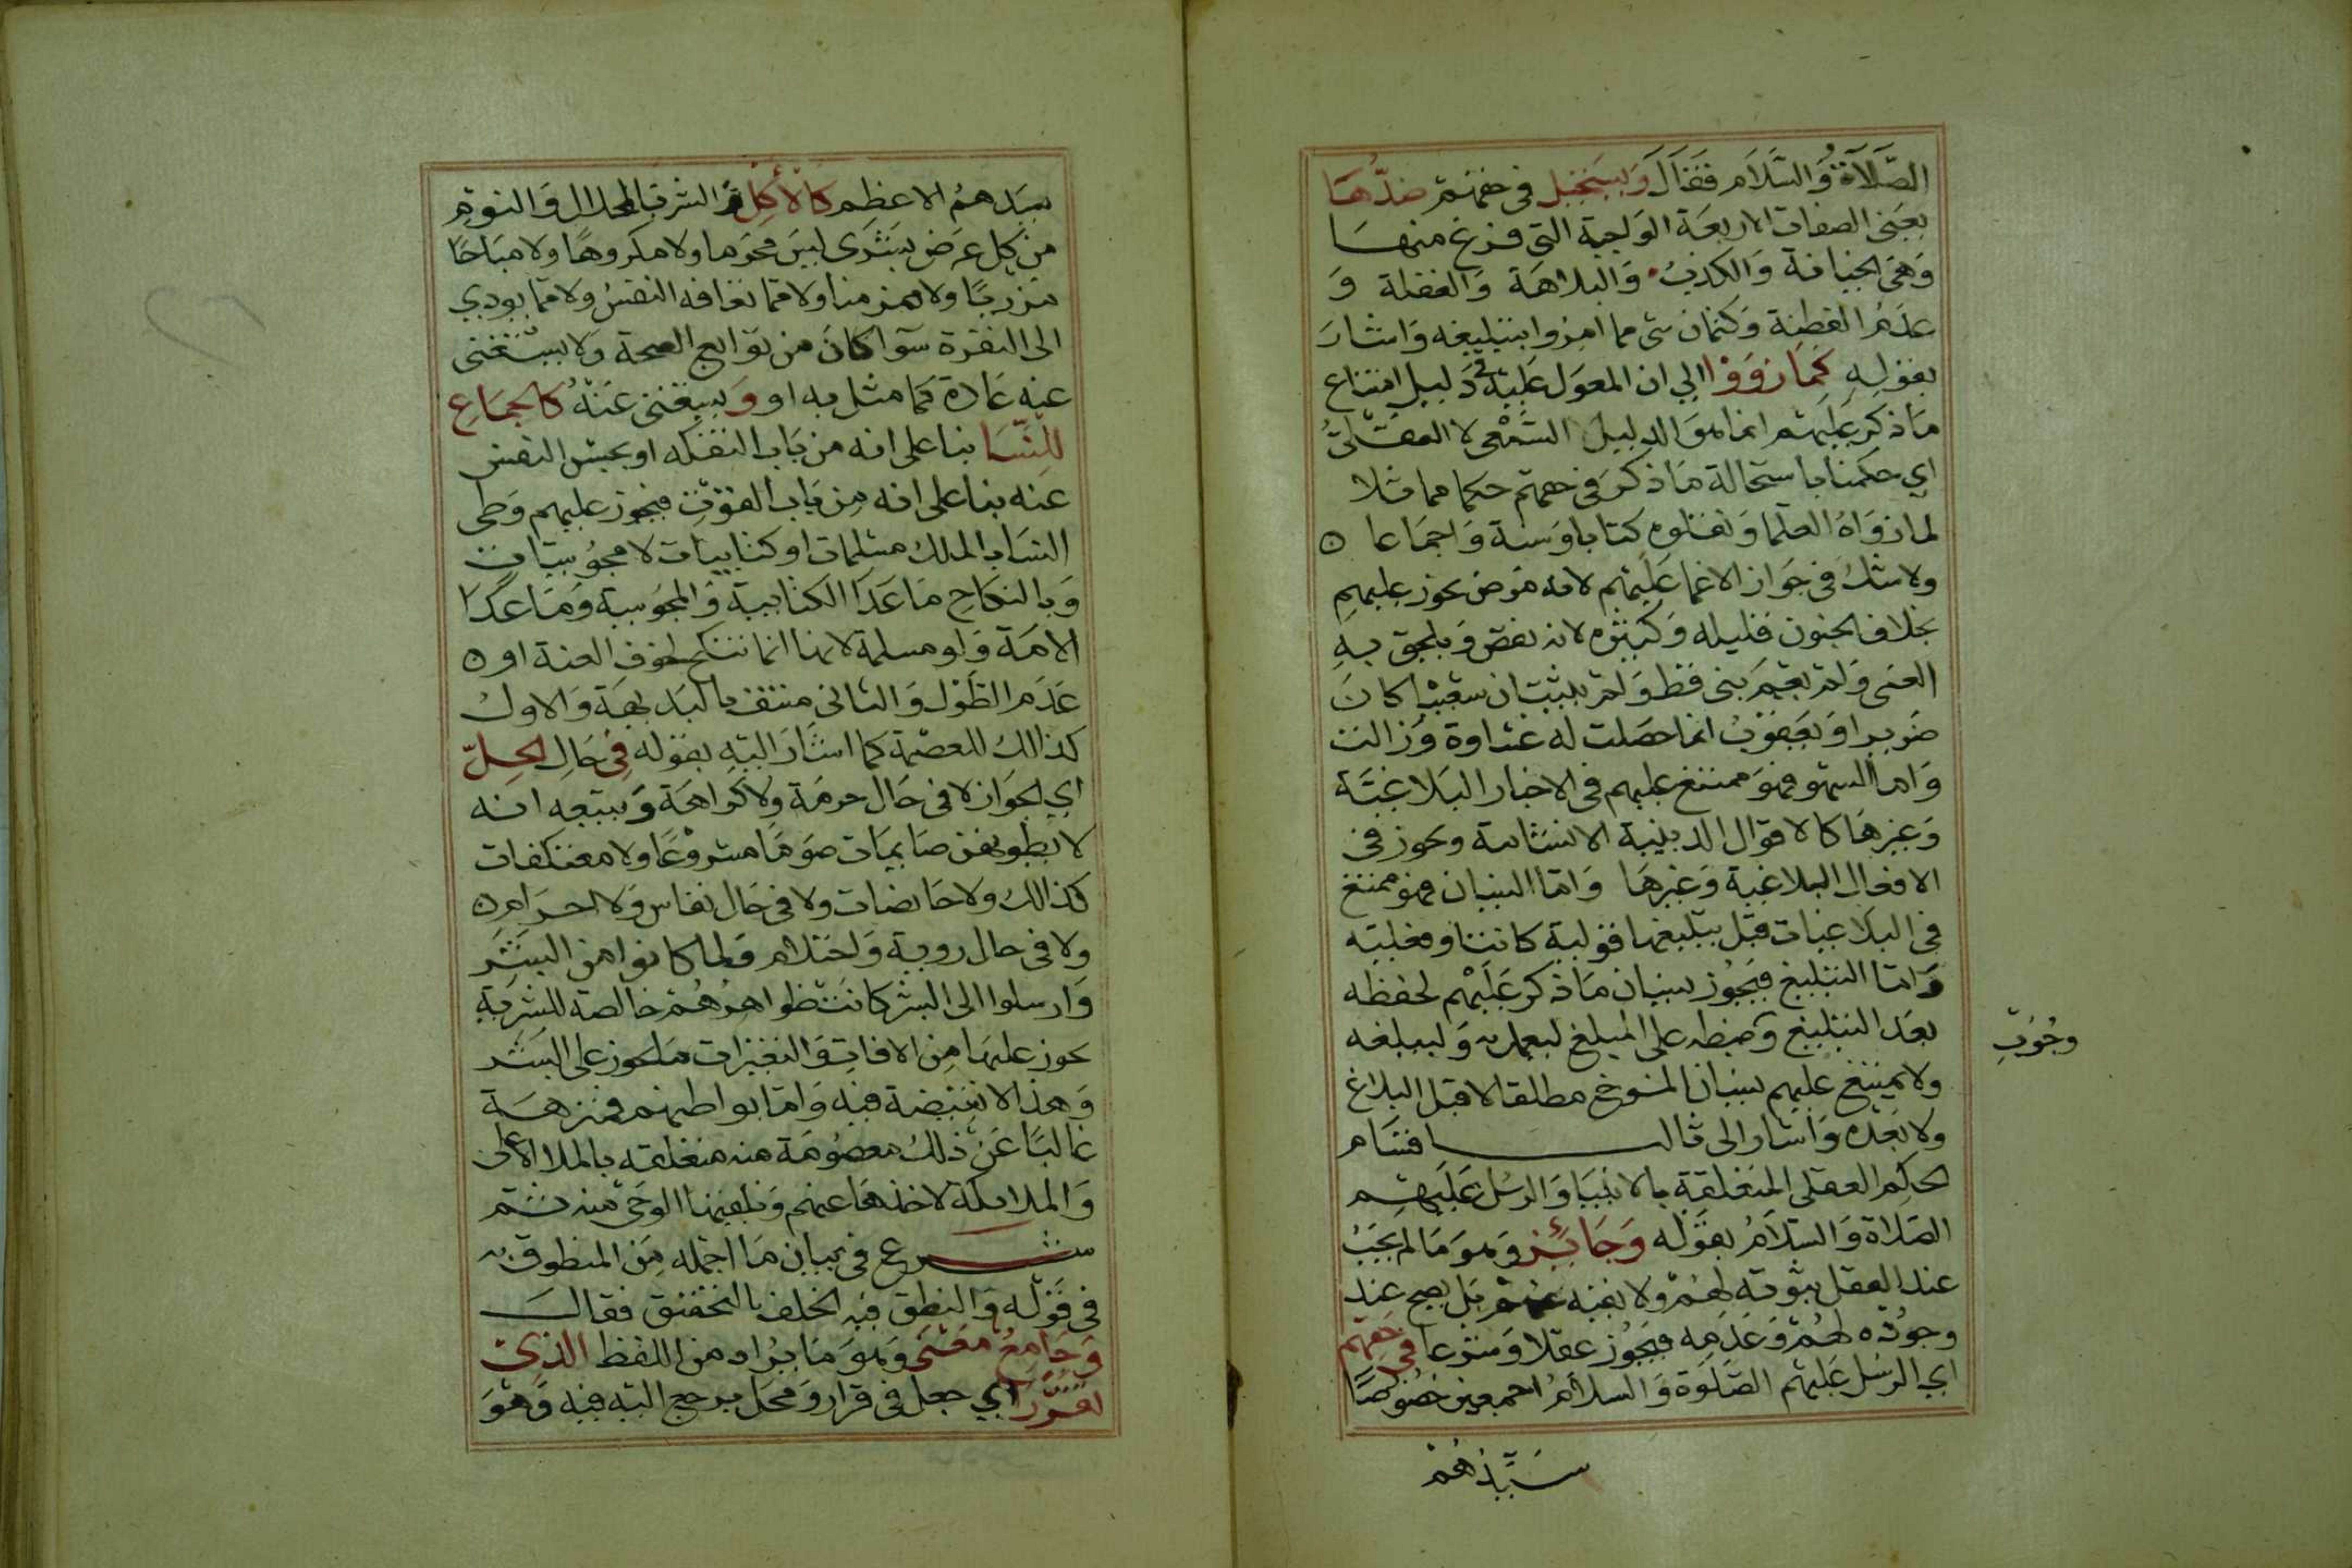 الصَّلَاة وَالسَّلَام فَقَالَ وَيَسْتَحِيل فى حقهم ضدُّهَا
يعنى الصفات الاربعة الواجبة التى فرغ منها
وَهى الخيانة وَالكذب وَالبلاهَة وَالغفلة وَ
عدم الفطنة وَكتمان شى مما امروا بتبليغه وَاشارَ
بقوله كَمَا رَوَوْا الي ان المعوَل عَليه فى دَليل امتناع
مَا ذكر عَليهم انما هوَ الدليل السَّمْعى لا العقلىُّ
اي حكمنا باستحالة مَا ذكرَ فى حقهم حكما مماثلا
لما رَوَاهُ العلما وَنقلوه كتابا وَسنة وَاجمَاعا ه
ولا شك فى جَوَاز الاغما عَليهم لانه مَرض يجوز عليهم
بخلاف الجنون قليله وَكثيره لانه نقص وَيلحق به
العمى وَلم يعم نبى قط وَلم يثبت ان شعيبا كانَ
ضريرا وَيَعقوبُ انما حصَلت له غشاوة وَزالت
وَاما السهو فهوَ ممتنع عليهم فى الاخبار البَلاغيَّة
وَغيرهَا كالاقوال الدينية الانشائية ويجوز فى
الافعال البلاغية وَغيرهَا وَامّا النسيان فهو ممتنع
فى البلاغيات قبل تبليغها قولية كانت او فعلية
وَامّا التبليغ فيَجُوز نسيان مَا ذكر عَليْهم لحفظه
بعَد التبليغ وَضبطه على المبلغ ليعمل به وَليبلغه
وجُوبِ
ولا يمتنع عليهم نسيان المنسوخ مطلقا لا قبل البلاغ
ولا بَعْدَه وَاشار الى ثالث اقسَام
الحكم العقلى المتعَلقة بالانبيَا وَالرسُل عَليهم
الصَلاة وَالسَّلامُ بقوْله وَجَائِز وَهوَ مَا لم يجَبْ
عند العقل ثبوته لهُمْ ولا نفيه عنهم بَل يصح عند
وجوُده لهُم وَعَدَمه فيَجُوز عقلا وَشرعا فى حَقهم
اي الرسُل عَليهم الصَّلَوة وَالسلامُ اجمعين خصُوصًا
سَيّدهُمْ
سَيَدهمُ الاعظم كَالأكِل وَ الشرب الحلال وَالنوم
من كل عرَض بشَرَى ليسَ محرَما ولا مكروهًا ولا مباحًا
مزريًا ولا مزمنا ولا مما تعافه النفسُ ولا مما يودي
الى النفرة سَوَا كانَ من توَابع الصحة ولا يسْتغنى
عنه عَادة كَمَا مثل به او وَيستغنى عَنْهُ كالجمَاعِ
لِلنّسَا بنا على انه من بَاب التفكه او بحبس النفس
عنه بنا على انه من بَاب القوْت فيَجوز عليهم وَطى
النسَا بالملك مسْلمات او كتابيات لا مجوُسيات
وَبالنكاحِ مَا عَدَا الكتابية وَالمجوسية وَمَا عَدَا
الامَة وَلو مسلمة لانها انما تنكح لخوف العنة او ه
عَدَم الطَوْل وَالثانى منتف بالبَديهَة وَالاول
كذالك للعصمة كما اشارَ اليه بقوله فِى حَالِ الحِلّ
اي الجَواز لا فى حَال حرمَة ولا كرَاهَة وَيتبعه انه
لا يطوهن صَايمَات صَومًا مشروعًا ولا معتكفات
كذالك ولا حَايضات ولا فى حَال نفاس وَلا احرَام ه
ولا فى حال روية وَاحتلام وَلما كانوا من البشَر
وَارسلوا الى البشر كانَت ظواهرهُم خالصة للبشرية
يجوز عليها مِن الافات وَالتغيرات مَا يجوز على البشر
وَهذا لا نقيضة فيه وَامّا بواطنهم فمنزهَة
غَالبًا عَن ذلك معصُومَة منه متعَلقه بالملا الاعلى
وَالملائكة لاخذهَا عنهم وَتلقيها الوحَى منه ثم
شرع فى بيان مَا اجمله من المنطوق به
فى قَوْله وَالنطق فيه الخلف بالتحقيق فقالَ
وَجَامعُ مَعْنَى وَهوَ مَا يُراد من اللفظ الذِى
تقرَّرَا اي جعل فى قرار وَمحَل يرجع اليه فيه وَهوَ